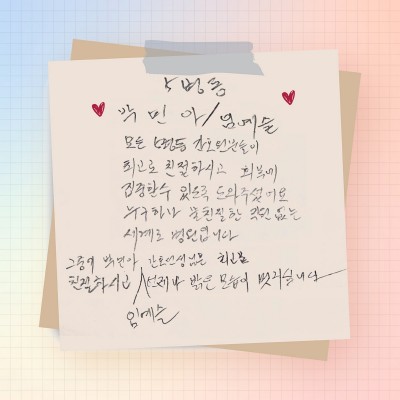 5병동
박민아/임예슬
모든 5병동 간호인분들이
최고로 친절하시고 회복에
집중할수 있도록 도와주셨어요
누구하나 불친절한 직원 없는
세계로 병원입니다
그중에 박민아 간호선생님은 최고로
친절하시고 언제나 밝은 모습이 멋지십니다
임예슬